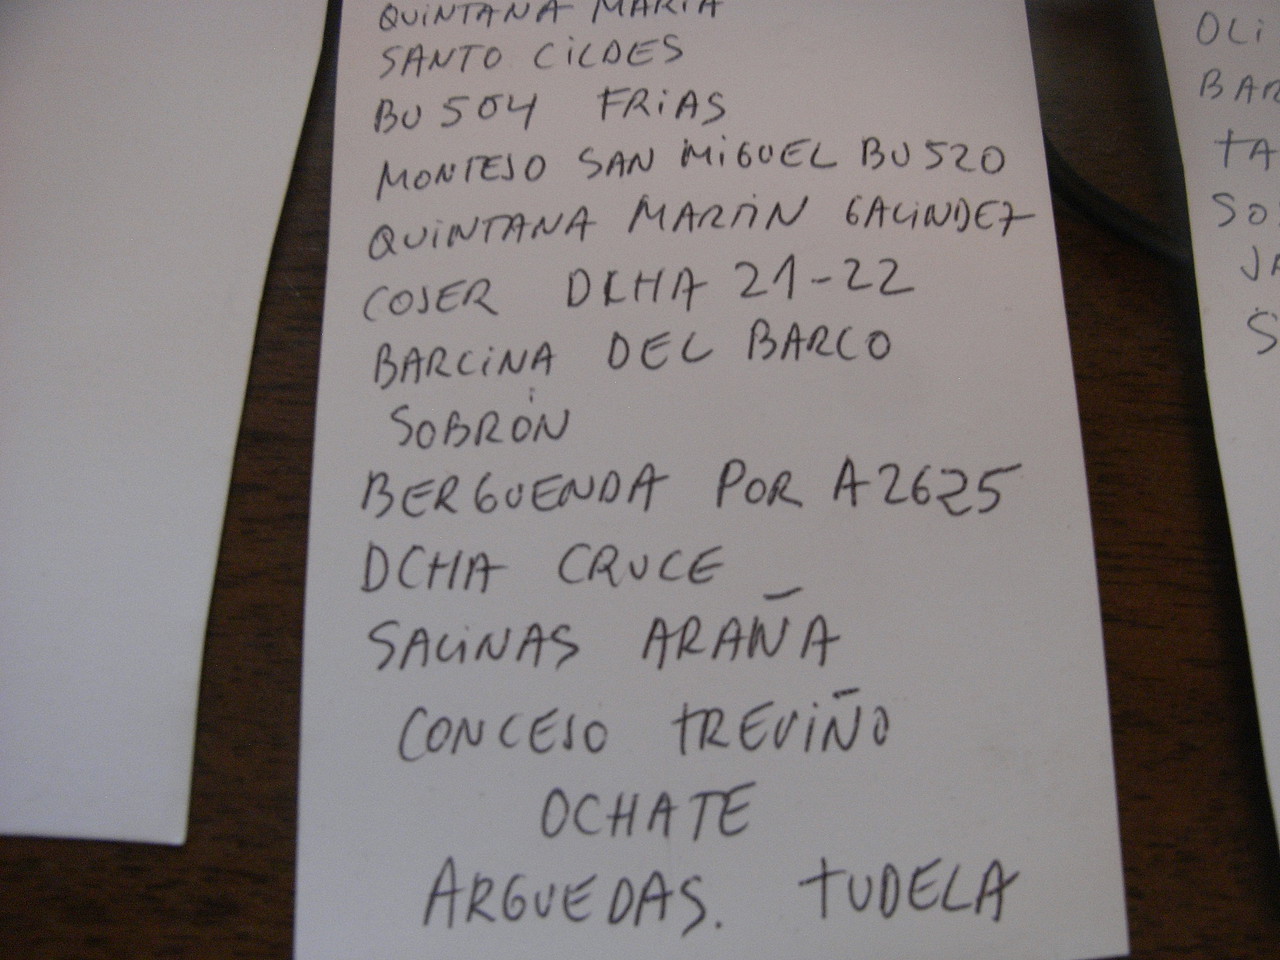 QUINTANA MARIA
SANTO CILDES
BU 504 FRIAS
MONTEJO SAN MIGUEL BU 520
QUINTANA MARTIN GALINDEZ
COJER DCHA 21-22
BARCINA DEL BARCO
SOBRÓN
BERGUENDA POR A2625
DCHA CRUCE
SALINAS ARAÑA
CONCEJO TREVIÑO
OCHATE
ARGUEDAS. TUDELA
OLI
BAR
TA
SO
JA
S